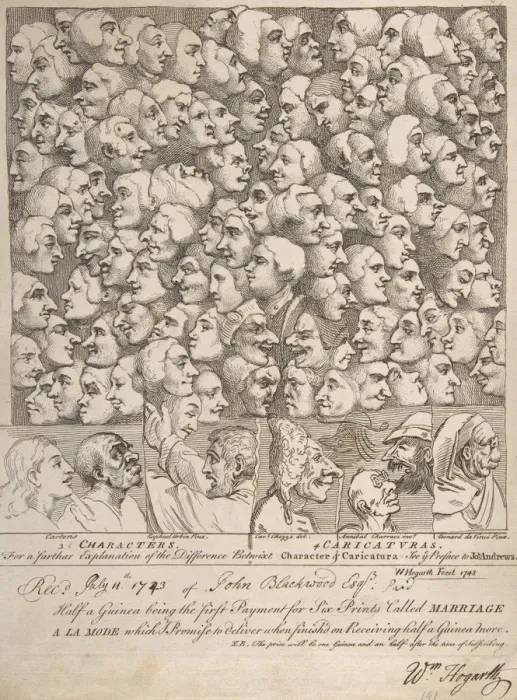 Cartons Raphael Urbin Pinx. Cavr. Chezze del. Annibal Charracci inv.t Leonard da Vinci Pinx.
3 CHARACTERS. 4 CARICATURAS.
For a farthar Explanation of the Difference Betwixt Character & Caricatura See ye Preface to Joh. Andrews.
W Hogarth Fecit 1743
Rec.d July 11th 1743 of John Blackwood Esqr. Paid
Half a Guinea being the first Payment for Six Prints Called MARRIAGE
A LA MODE which I Promise to deliver when finish'd on Receiving half a Guinea more.
N.B. The price will be one Guinea and an half after the time of Subscribing.
Wm Hogarth